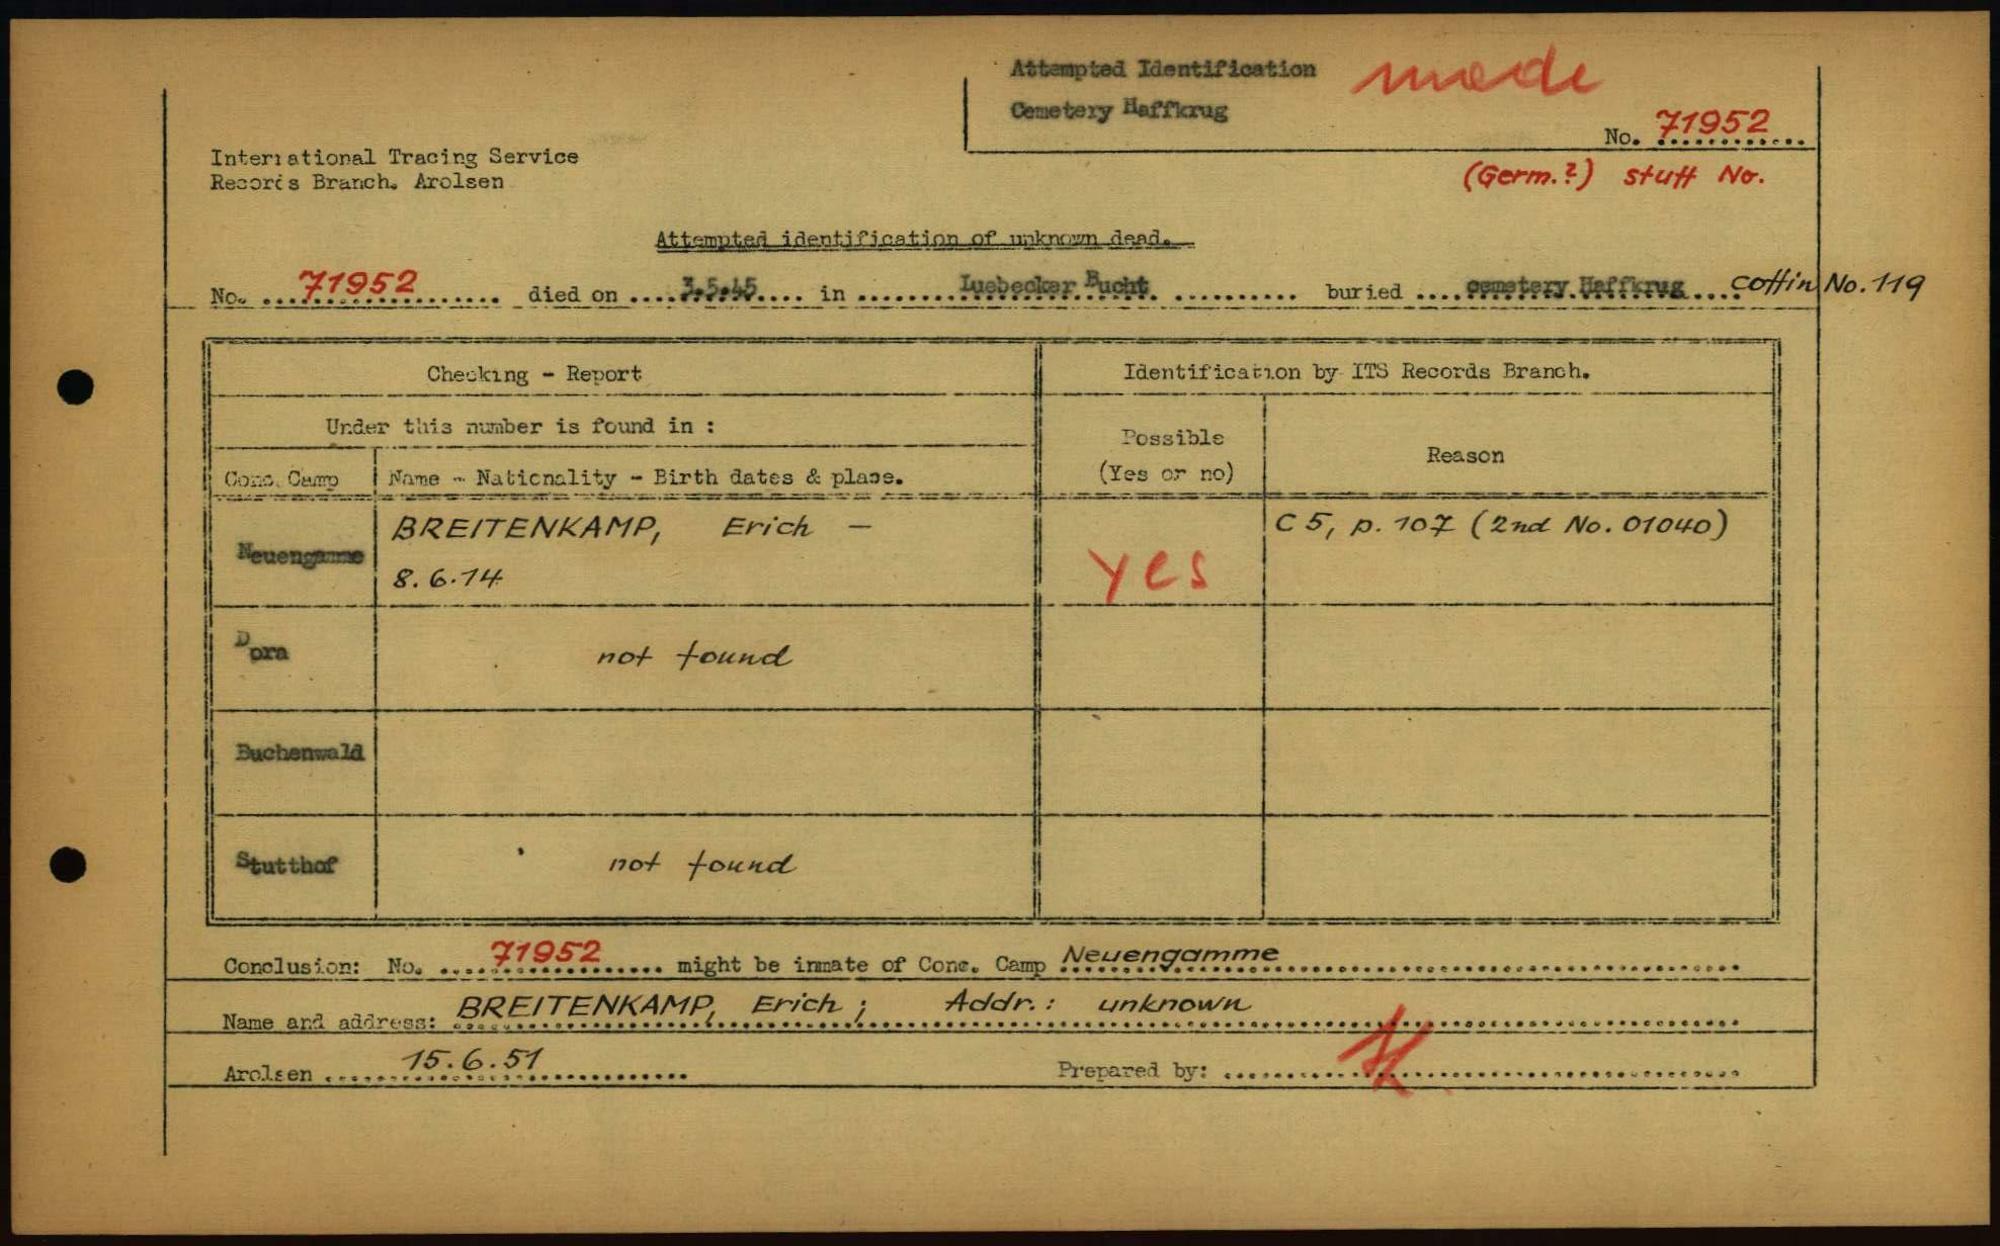 Attempted Identification made
Cemetery Haffkrug
No. 71952
International Tracing Service
Records Branch. Arolsen
(Germ.?) stuff No.
Attempted identification of unknown dead.
No. 71952 died on 3.5.45 in Luebecker Bucht. buried cemetery Haffkrug coffin No. 119
Checking - Report
Identification by ITS Records Branch.
Under this number is found in :
Possible
(Yes or no)
Reason
Conc. Camp
Name - Nationality - Birth dates & place.
Neuengamme
BREITENKAMP, Erich -
8.6.14
yes
C 5, p. 107 (2nd No. 01040)
Dora
not found
Buchenwald
Stutthof
not found
Conclusion: No. 71952 might be inmate of Conc. Camp Neuengamme
Name and address: BREITENKAMP, Erich ; Addr.: unknown
Arolsen 15.6.51 Prepared by: